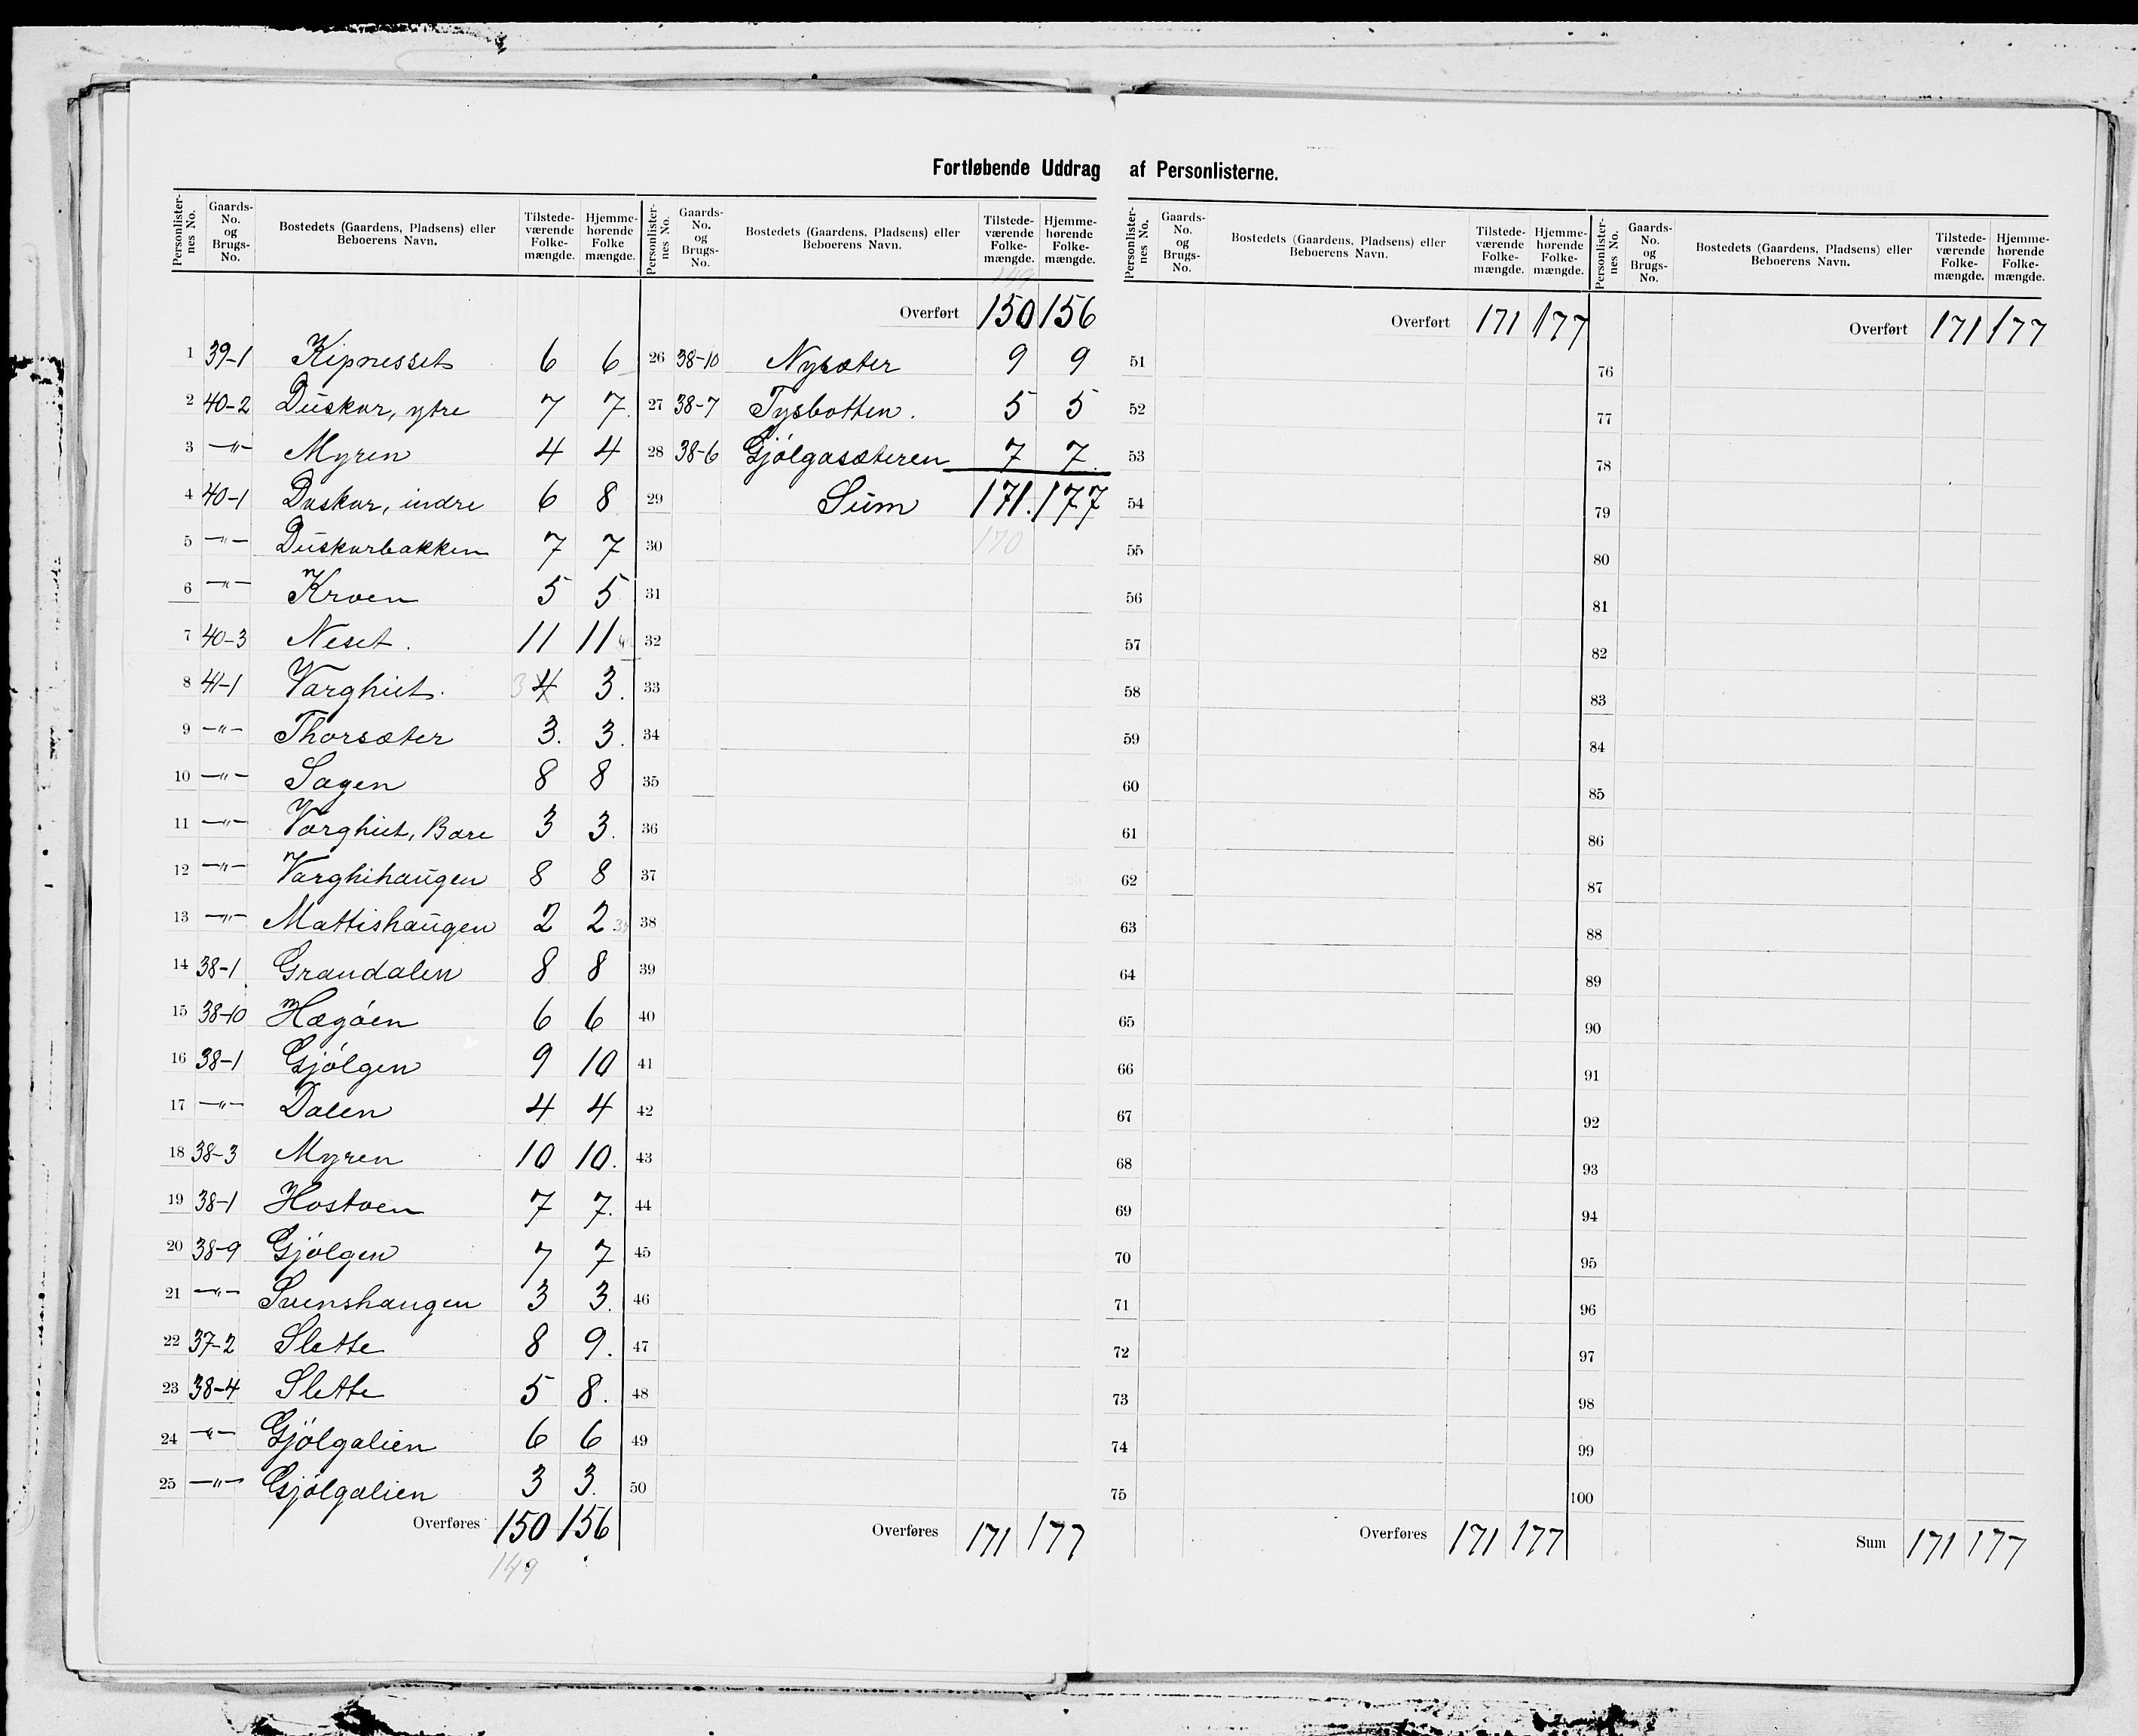 Fortløbende Uddrag af Personlisterne.
Personlisternes No. Gaards-No. og Brugs-No. Bostedets (Gaardens, Pladsens) eller Beboerens Navn. Tilstedeværende Folkemængde. Hjemmehørende Folke mængde.
1 39-1 Kipnesset 6 6
2 40-2 Duskar, ytre 7 7.
3 —"— Myren 4 4
4 40-1 Duskar, indre 6 8
5 —"— Duskarbakken 7 7
6 —"— Kroen 5 5
7 40-3 Neset. 11 11
8 41-1 Varghiet. 3 4 3.
9 —"— Thorsæter 3. 3.
10 —"— Sagen 8 8
11 —"— Varghiet, Bare 3 3.
12 —"— Varghihaugen 8 8
13 —"— Mattishaugen 2 2
14 38-1 Grandalen 8 8
15 38-10 Hægöen 6 6
16 38-1 Gjölgen 9 10
17 —"— Dalen 4 4
18 38-3 Myren 10 10.
19 38-1 Hostoen 7 7.
20 38-9 Gjölgen 7 7
21 —"— Svenshaugen 3 3.
22 37-2 Slette 8 9.
23 38-4 Slette 5 8.
24 —"— Gjölgalien 6 6
25 —"— Gjölgalien 3 3.
Overføres 150 156
149
Personlisternes No. Gaards-No. og Brugs-No. Bostedets (Gaardens, Pladsens) eller Beboerens Navn. Tilstedeværende Folkemængde. Hjemmehørende Folkemængde.
149
Overført 150 156
26 38-10 Nysæter 9 9
27 38-7 Tysbotten. 5 5
28 38-6 Gjölgasæteren 7 7.
29 Sum 171. 177
30 170
31
32
33
34
35
36
37
38
39
40
41
42
43
44
45
46
47
48
49
50
Overføres 171 177
Personlisternes No. Gaards-No. og Brugs-No. Bostedets (Gaardens, Pladsens) eller Beboerens Navn. Tilstedeværende Folkemængde. Hjemmehørende Folkemængde.
Overført 171 177
51
52
53
54
55
56
57
58
59
60
61
62
63
64
65
66
67
68
69
70
71
72
73
74
75
Overføres 171 177
Personlisternes No. Gaards-No. og Brugs-No. Bostedets (Gaardens, Pladsens) eller Beboerens Navn. Tilstedeværende Folkemængde. Hjemmehørende Folkemængde.
Overført 171 177
76
77
78
79
80
81
82
83
84
85
86
87
88
89
90
91
92
93
94
95
96
97
98
99
100
Sum 171 177